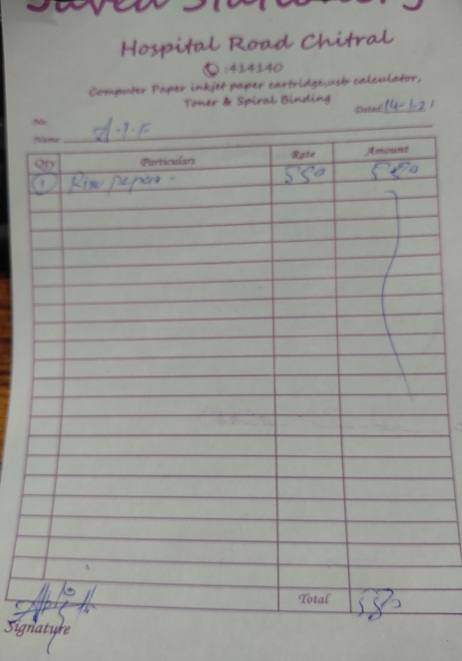 Javed Stationery
Hospital Road Chitral
:414140
Computer Paper inkjet paper cartridge,usb calculator,
Toner & Spiral Binding
Dated 14-1-21
No.
Name
Qty Particulars Rate Amount
1 Rim papers - 550 550
Total 550
Signature